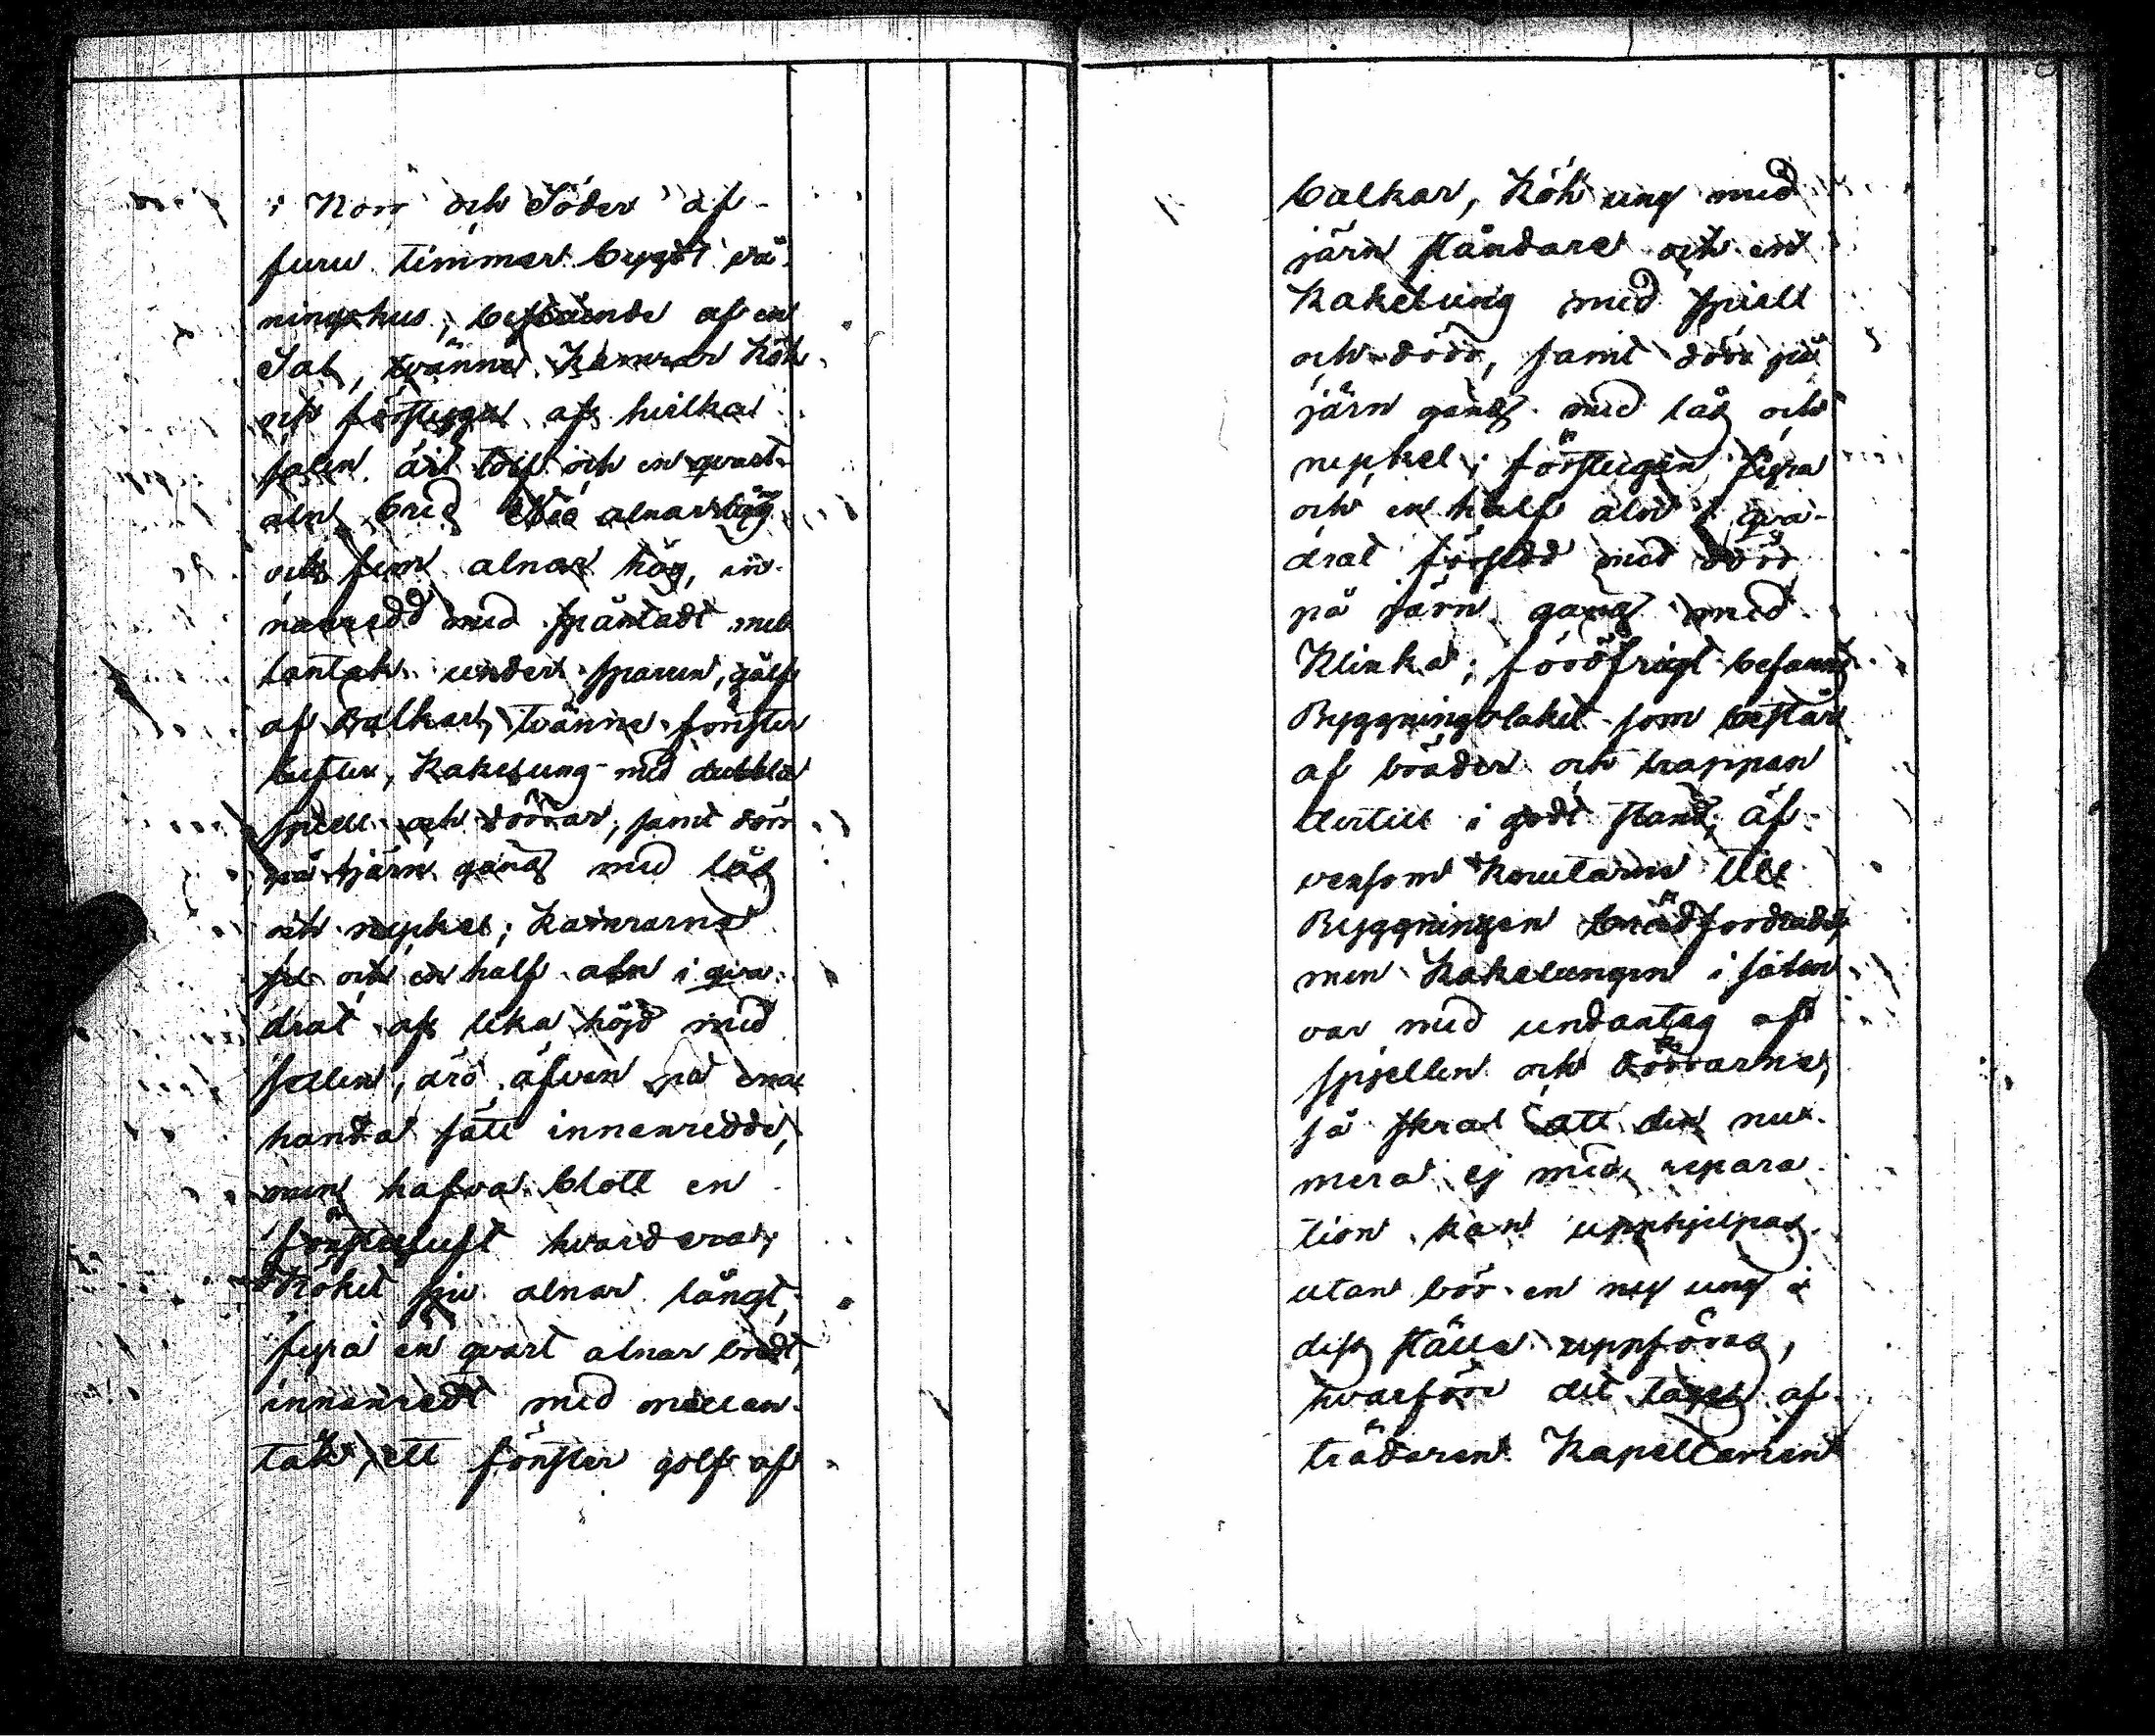 i Norr och Söder af
furu timmer bygdt vå-
ningshus, bestående af en
Sal, tvänne Kamrar Kök
och förstuga af hvilka
salen är tolf och en qvart
aln bred alnar låg
och fem alnar hög, in-
naredd med späntadt mel-
lantak under sparren, golf
af Balkar, tvänne fönster
lufter, Kakelung med dubbla
spiell och dörrar, samt dörr
på järn gång med lås
och nyckel; Kamrarna
sex och en half aln i qva-
drat af lika höjd med
sallen, äro äfven på ena-
handa sätt innanredde,
men hafva blott en
fönsterluft hvardera;
Köket sju alnar långt,
fyra en qvart alnar bredt,
innanredt med mellan-
tak, ett fönster golf af
balkar, Kök ung med
järn ståndare och en
Kakelung med spiell
och dörr, samt dörr på
järn gång med lås och
nyckel; förstugan fyra
och en half aln i qva-
drat försedd med dörr
på järn gång med
Klinka; föröfrigt befanns
Byggningstaket som består
af bräder och trappan
dertill i godt stånd, äf-
vensom Knutarne till
Byggningen brädfordrade,
men Kakelungen i salen
var med undantag af
spjellen och dörrarne,
så skral att den nu-
mera ej med repara-
tion kan upphjelpas
utan bör en ny ung i
dess ställe uppföras,
hvarföre det af-
trädaren Kapellanen